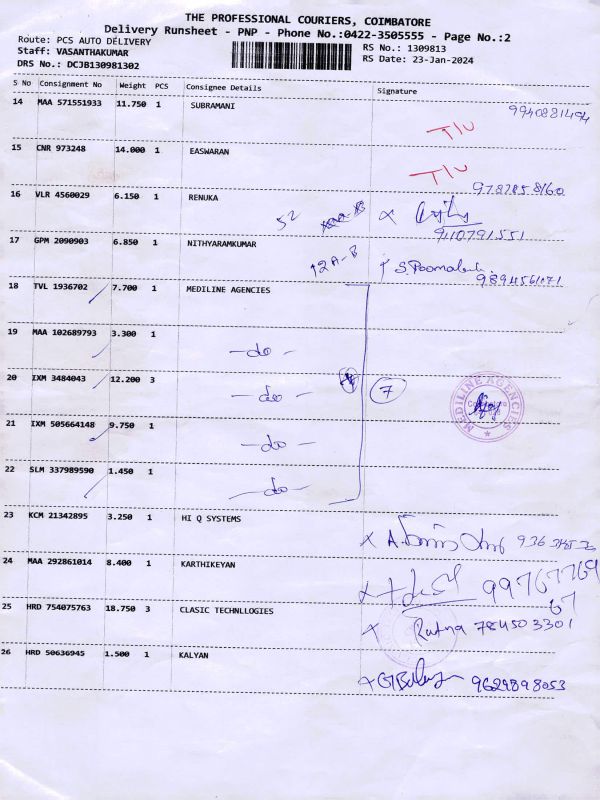 THE PROFESSIONAL COURIERS, COIMBATORE
Delivery Runsheet - PNP - Phone No.:0422-3505555 - Page No.:2
Route: PCS AUTO DELIVERY
RS No.: 1309813
Staff: VASANTHAKUMAR
RS Date: 23-Jan-2024
DRS No.: DCJB130981302
S No Consignment No Weight PCS Consignee Details Signature
14 MAA 571551933 11.750 1 SUBRAMANI 9940881494
T/U
15 CNR 973248 14.000 1 EASWARAN
T/U
16 VLR 4560029 6.150 1 RENUKA 52
9110791551
17 GPM 2090903 6.850 1 NITHYARAMKUMAR
12A-B
18 TVL 1936702 7.700 1 MEDILINE AGENCIES
19 MAA 102689793 3.300 1
-do-
20 IXM 3484043 12.200 3
-do- 7
MEDILINE AGENCIES
21 IXM 505664148 9.750 1
-do-
22 SLM 337989590 1.450 1
-do-
23 KCM 21342895 3.250 1 HI Q SYSTEMS
24 MAA 292861014 8.400 1 KARTHIKEYAN
25 HRD 754075763 18.750 3 CLASIC TECHNLLOGIES
x Ratna 784503301
26 HRD 50636945 1.500 1 KALYAN
9629898053